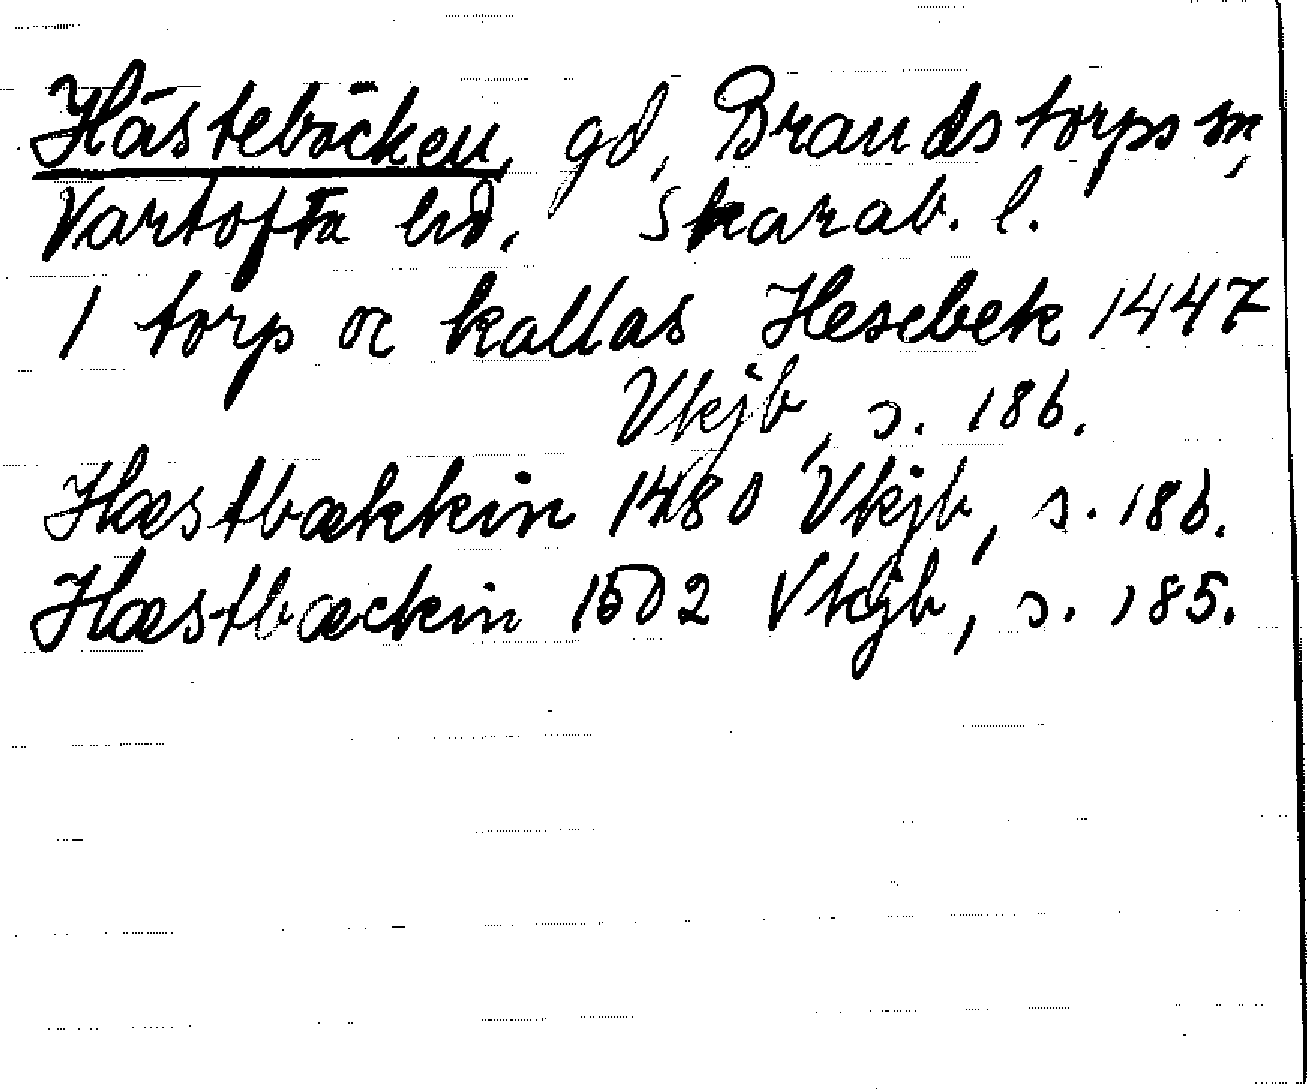 Hästebäcken, gd, Brandstorps sn,
Vartofta hd, Skarab. l.
1 torp oc kallas Hesebek 1447
Vkjb, s. 186.
Hæstbækkin 1480 Vkjb, s. 186.
Hæstbæckin 1502 Vkjb, s. 185.